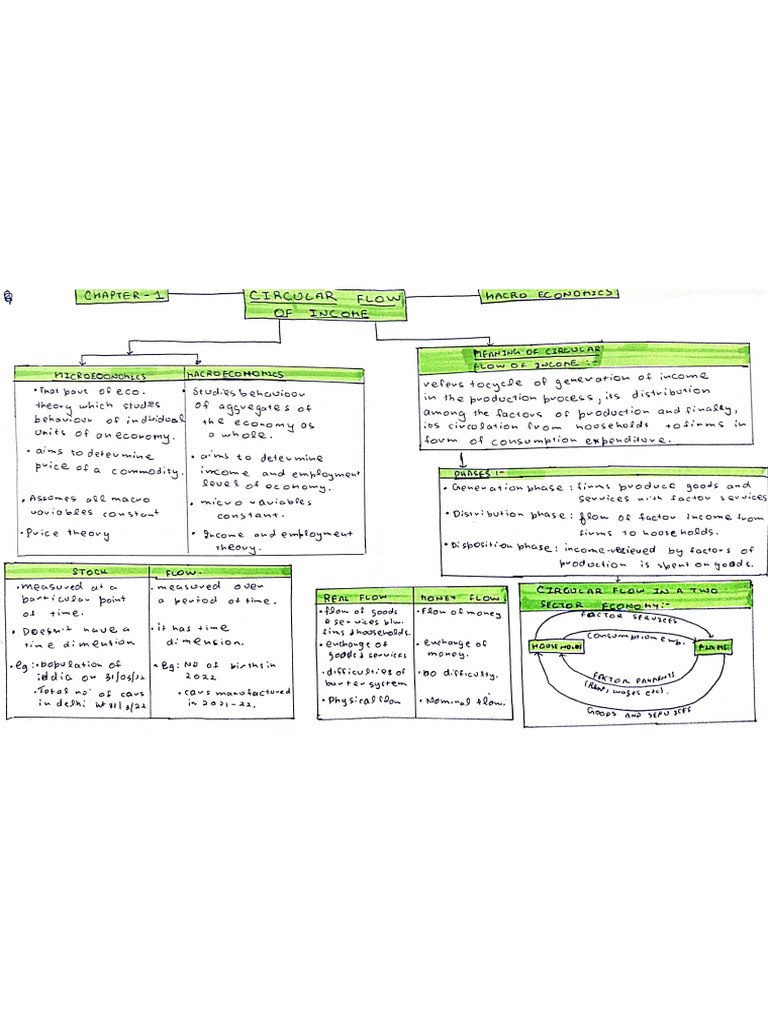 CHAPTER-1
CIRCULAR FLOW
OF INCOME
MACRO ECONOMICS
MICROECONOMICS
• That part of eco.
theory which studies
behaviour of individual
units of an economy.
• aims to determine
price of a commodity.
• Assumes all macro
variables constant
• Price theory
MACROECONOMICS
• Studies behaviour
of aggregates of
the economy as
a whole.
• aims to determine
income and employment
level of economy.
• micro variables
constant.
• Income and employment
theory.
MEANING OF CIRCULAR
FLOW OF INCOME :-
refers to cycle of generation of income
in the production process, its distribution
among the factors of production and finally,
its circulation from households to firms in
form of consumption expenditure.
PHASES :-
• Generation phase : firms produce goods and
services with factor services
• Distribution phase : flow of factor income from
firms to households.
• Disposition phase : income recieved by factors of
production is spent on goods.
STOCK
• Measured at a
particular point
of time.
• Doesn't have a
time dimension
• Eg :- population of
on 31/03/22
• Total no. of cars
in delhi 31/3/22
FLOW.
• measured over
a period of time.
• it has time
dimension.
• Eg: No of births in
2022
• cars manufactured
in 2021-22.
REAL FLOW
• flow of goods
& services b/w.
firms & households.
• exchange of
goods & services
• difficulties of
barter system
• Physical flow
MONEY FLOW
• Flow of money
• exchange of
money.
• no difficulty.
• Nominal flow.
CIRCULAR FLOW IN A TWO
SECTOR ECONOMY:-
FACTOR SERVICES
Consumption exp.
HOUSEHOLDS
FIRMS
FACTOR PAYMENTS
(Rent, wages etc).
GOODS AND SERVICES